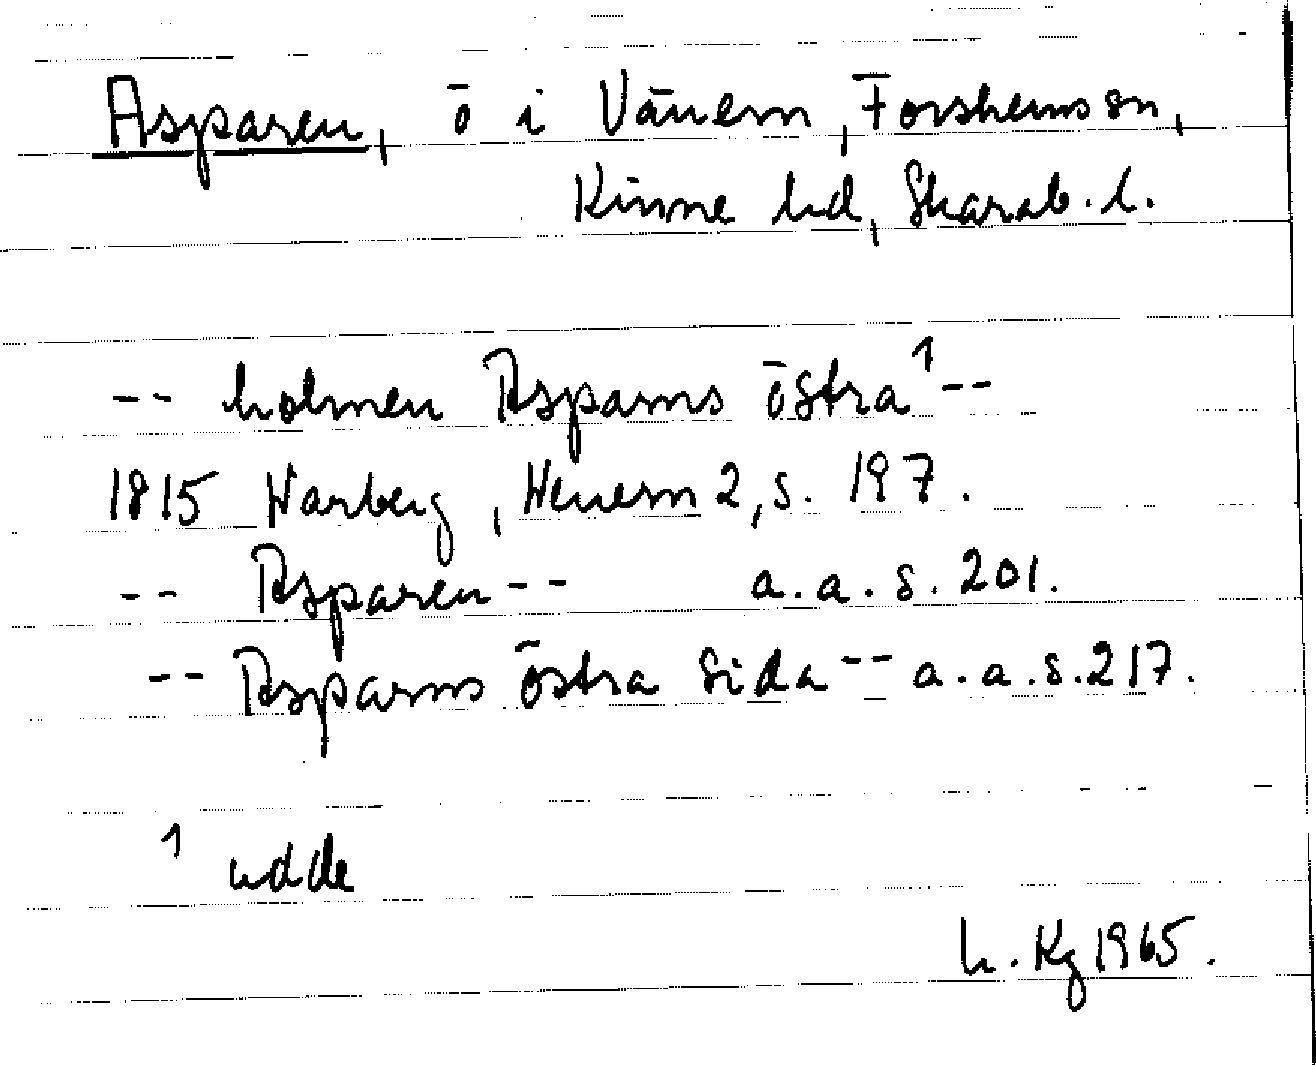 Asparen, ö i Vänern, Forshems sn,
Kinne hd, Skarab. l.
-- holmen Asparns östra¹ --
1815 Warberg, Wenern 2, s. 197.
-- Asparen -- a.a. s. 201.
-- Asparns östra sida -- a.a. s. 217.
¹ udde
h. Kg 1965.